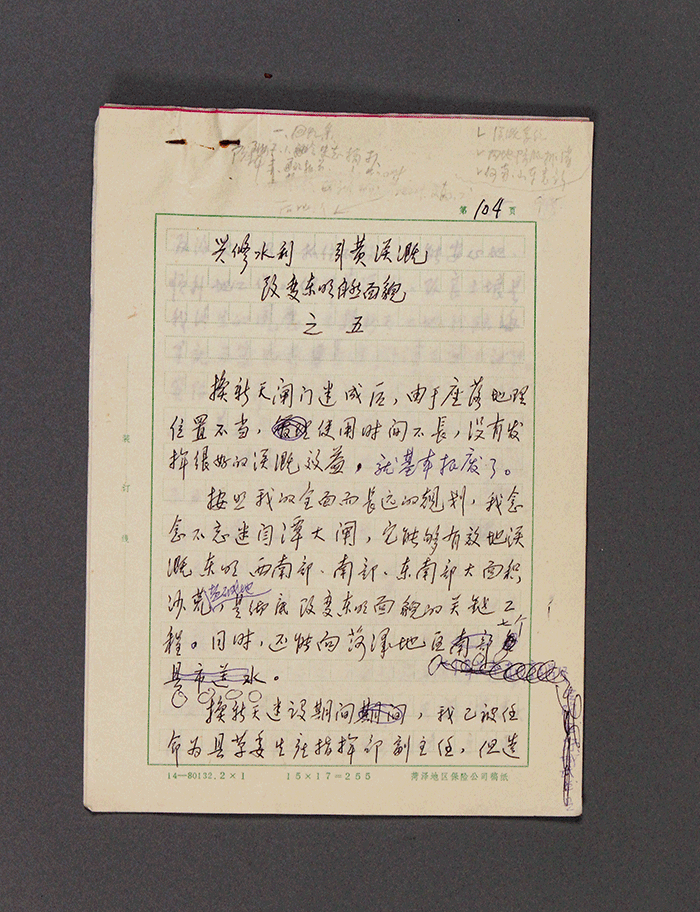 第 104 页
兴修水利 引黄淤溉
改变东明自然面貌
之五
换新天闸门建成后，由于座落地理
位置不当，使用时间不长，没有发
挥很好的淤溉效益，就基本报废了。
按照我的全面而长远的规划，我念
念不忘建阎潭大闸，它能够有效地淤
溉东明西南部、南部、东南部大面积
盐碱地
沙荒，是彻底改变东明面貌的关键工
七个
程。同时，还能向菏泽地区南部
县市送水。
换新天建设期间期间，我已被任
命为县革委生产指挥部副主任，但建
装订线
14—80132.2×1 15×17=255 菏泽地区保险公司稿纸